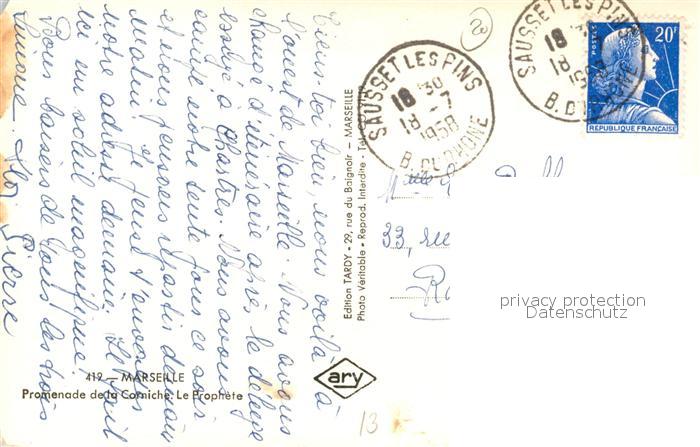 Tiens-toi bien, nous voilà à
l'ouest de Marseille. Nous avons
changé d'itinéraire après le déluge
essuyé à Chartres. Nous avons
campé notre tente tous ce soir
et nous pensons repartir demain
matin. Je peux t'envoyer
notre adresse demain. Il fait
ici un soleil magnifique!
Bons baisers de tous les trois
Simone Pierre
419 — MARSEILLE
Promenade de la Corniche. Le Prophète
Edition TARDY - 29, rue du Baignoir - MARSEILLE
Photo Véritable - Reprod. Interdite - Tél.
ary
SAUSSET LES PINS
18 30
18 -7
1958
B. DU RHONE
SAUSSET LES PINS
18
18
B. DU RHONE
POSTES
20F
REPUBLIQUE FRANÇAISE
33, rue
privacy protection
Datenschutz
20
13